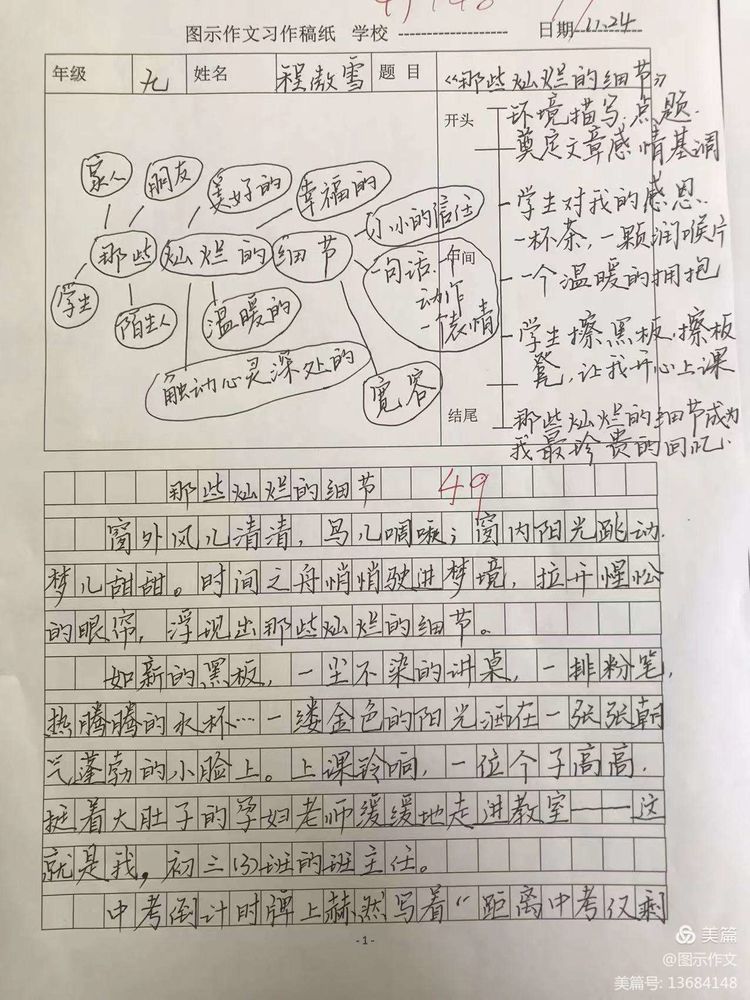 图示作文习作稿纸 学校 日期 11.24
年级 九 姓名 程傲雪 题目 《那些灿烂的细节》
家人
朋友
美好的
幸福的
小小的信任
那些
灿烂的
细节
一句话
动作
一个表情
学生
陌生人
温暖的
触动心灵深处的
宽容
开头
环境描写,点题.
奠定文章感情基调
中间
学生对我的感恩.
一杯茶,一颗润喉片
一个温暖的拥抱
学生擦黑板,擦板
凳,让我开心上课
结尾
那些灿烂的细节成为
我最珍贵的回忆.
那些灿烂的细节
49
窗外风儿清清,鸟儿啁啾;窗内阳光跳动.
梦儿甜甜。时间之舟悄悄驶进梦境,拉开惺忪
的眼帘,浮现出那些灿烂的细节。
如新的黑板,一尘不染的讲桌,一排粉笔,
热腾腾的水杯…一缕金色的阳光洒在一张张朝
气蓬勃的小脸上。上课铃响,一位个子高高.
挺着大肚子的孕妇老师缓缓地走进教室——这
就是我,初三(3)班的班主任。
中考倒计时牌上赫然写着“距离中考仅剩
-1-
美篇
@图示作文
美篇号: 13684148